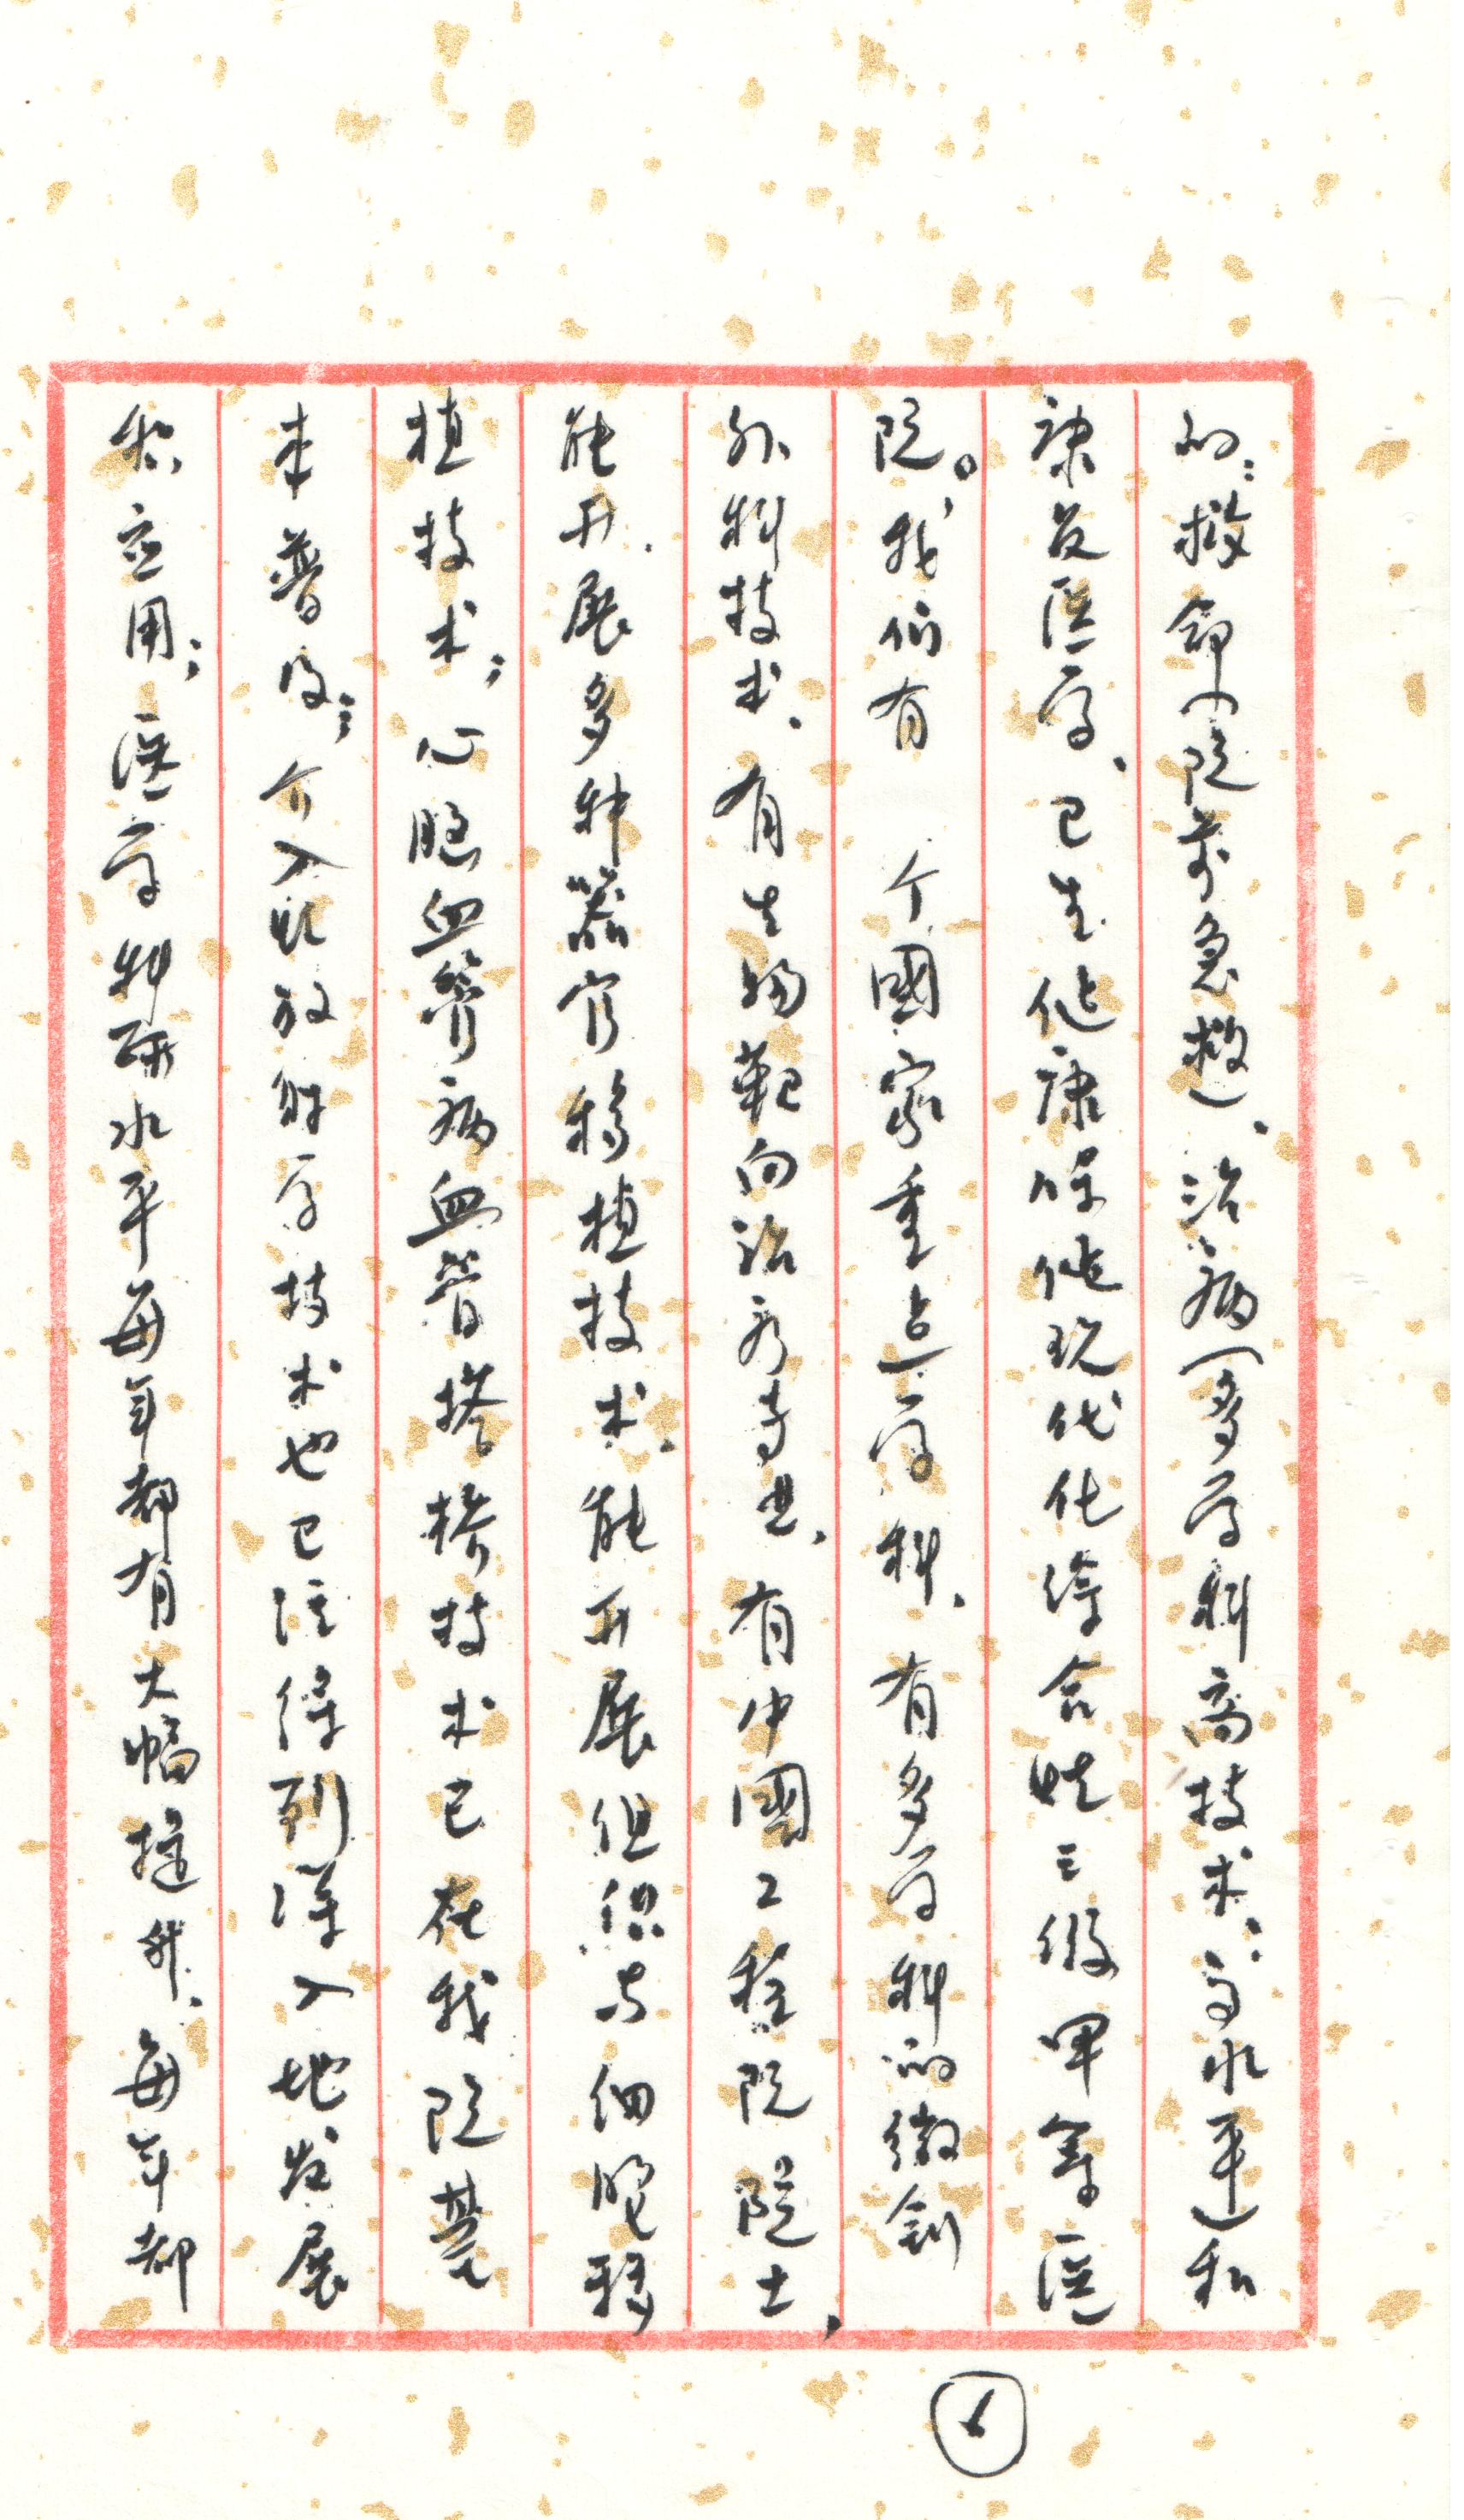 的：救命（院前急救、治病（多学科高技术、高水平）和
康复医学、卫生健康保健现代化综合性三级甲等医
院。我们有 个國家重点学科、有多学科的微创
外科技术、有生物靶向治疗专业、有中國工程院院士、
能开展多种器官移植技术、能开展组织与细胞移
植技术；心脑血管病血管搭桥技术已在我院基
本普及；介入性放射学技术也已经得到深入地发展
和应用；医学科研水平每年都有大幅提升、每年都
6